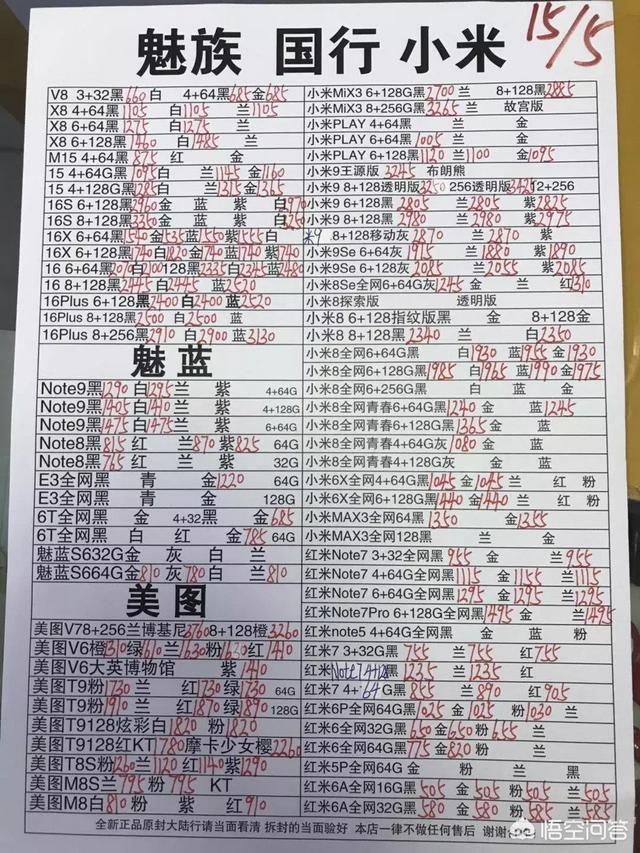 魅族 国行 小米
15/5
V8 3+32黑660白 4+64黑685金685
X8 4+64黑1105 白1105 兰1105
X8 6+64黑1275 白1275 兰
X8 6+128黑1460 白1485 兰
M15 4+64黑875 红 金
15 4+64G黑1095白 兰1145金1160
15 4+128G黑1285白 兰1315金1365
16S 6+128黑2960 金 蓝 紫 白2970
16S 8+128黑3250 金 蓝 紫 白3250
16X 6+64黑1540金1535蓝1550紫1555白
16X 6+128黑1740白1820金1740蓝1740紫1740
16 6+64黑2070白2100 128黑2335白2345蓝2480
16 8+128黑2445白2445 蓝2520
16Plus 6+128黑2400白2400 蓝2520
16Plus 8+128黑2500白2500 蓝
16Plus 8+256黑2910 白2900 蓝3130
魅蓝
Note9黑1290 白1295兰 紫 4+64G
Note9黑1405白1410 兰 紫 4+128G
Note9黑1475白1475兰 紫 6+64G
Note8黑815 红 兰870紫825 64G
Note8黑765 红 兰 紫 32G
E3全网黑 青 金1220 64G
E3全网黑 青 金 128G
6T全网黑 金 4+32黑 金685
6T全网黑 白 红 金785 64G
魅蓝S632G金 灰 白 兰
魅蓝S664G金810 灰780白 兰810
美图
美图V78+256兰博基尼3760 8+128橙3260
美图V6橙1310兰1610兰1630粉1620红1410
美图V6大英博物馆 紫1410
美图T9粉1730 兰 红1730绿1730 64G
美图T9粉1910 兰 红1870绿1890 128G
美图T9128炫彩白1820 粉1820
美图T9128红KT1780摩卡少女樱2260
美图T8S粉1260兰1120 红1140紫1290
美图M8S兰795粉795 KT
美图M8白810 粉 紫 红910
小米MiX3 6+128G黑2700 兰 8+128黑2885
小米MiX3 8+256G黑3265兰 故宫版
小米PLAY 4+64黑 兰 金
小米PLAY 6+64黑1005 兰 金
小米PLAY 6+128黑1120 兰1100 金1095
小米9王源版3245 布朗熊
小米9 8+128透明版3250 256透明版3425 12+256
小米9 6+128黑2805 兰2805 紫2825
小米9 8+128黑2980 兰2980 紫2975
米9 8+128移动灰2870 兰2870 紫
小米9Se 6+64灰1915 兰1880紫1890
小米9Se 6+128灰2085 兰2055紫2085
小米8Se全网6+64G灰1245金 兰 红1310
小米8探索版 透明版
小米8 6+128指纹版黑 金 8+128金
小米8 8+128黑2340 兰 白2350
小米8全网6+64G黑 白1930 蓝1955金1930
小米8全网6+128G黑1985 白1965 蓝1990金1975
小米8全网6+256G黑 白 蓝 金
小米8全网青春6+64G黑1240金 蓝1245
小米8全网青春6+128G黑1365金 蓝
小米8全网青春4+64G灰1080 金 蓝
小米8全网青春4+128G灰 金 蓝
小米6X全网4+64G黑1045金1045 兰 红 粉
小米6X全网6+128G黑1440金1440 兰 红 粉
小米MAX3全网64黑1350 金1355
小米MAX3全网128黑 兰 金
红米Note7 3+32全网黑955 金 兰955
红米Note7 4+64G全网黑1115金1155兰1115
红米Note7 6+64G全网黑1295金1295兰1295
红米Note7Pro 6+128G全网黑1495金 兰1495
红米note5 4+64G全网黑 金 蓝
红米7 3+32G黑755 兰755 红755
红米Note7 4+128黑1235 兰1235 红
红米7 4+64G黑855 兰890 红905
红米6P全网64G黑1025 金1025 粉1030 兰
红米6全网32G黑650金650粉655 兰
红米6全网64G黑775金820粉 兰
红米5P全网64G 金 粉 兰 黑
红米6A全网16G黑505金505粉505兰505
红米6A全网32G黑580金580粉585兰585
全新正品原封大陆行请当面看清 拆封的当面验好 本店一律不做任何售后 谢谢合
悟空问答